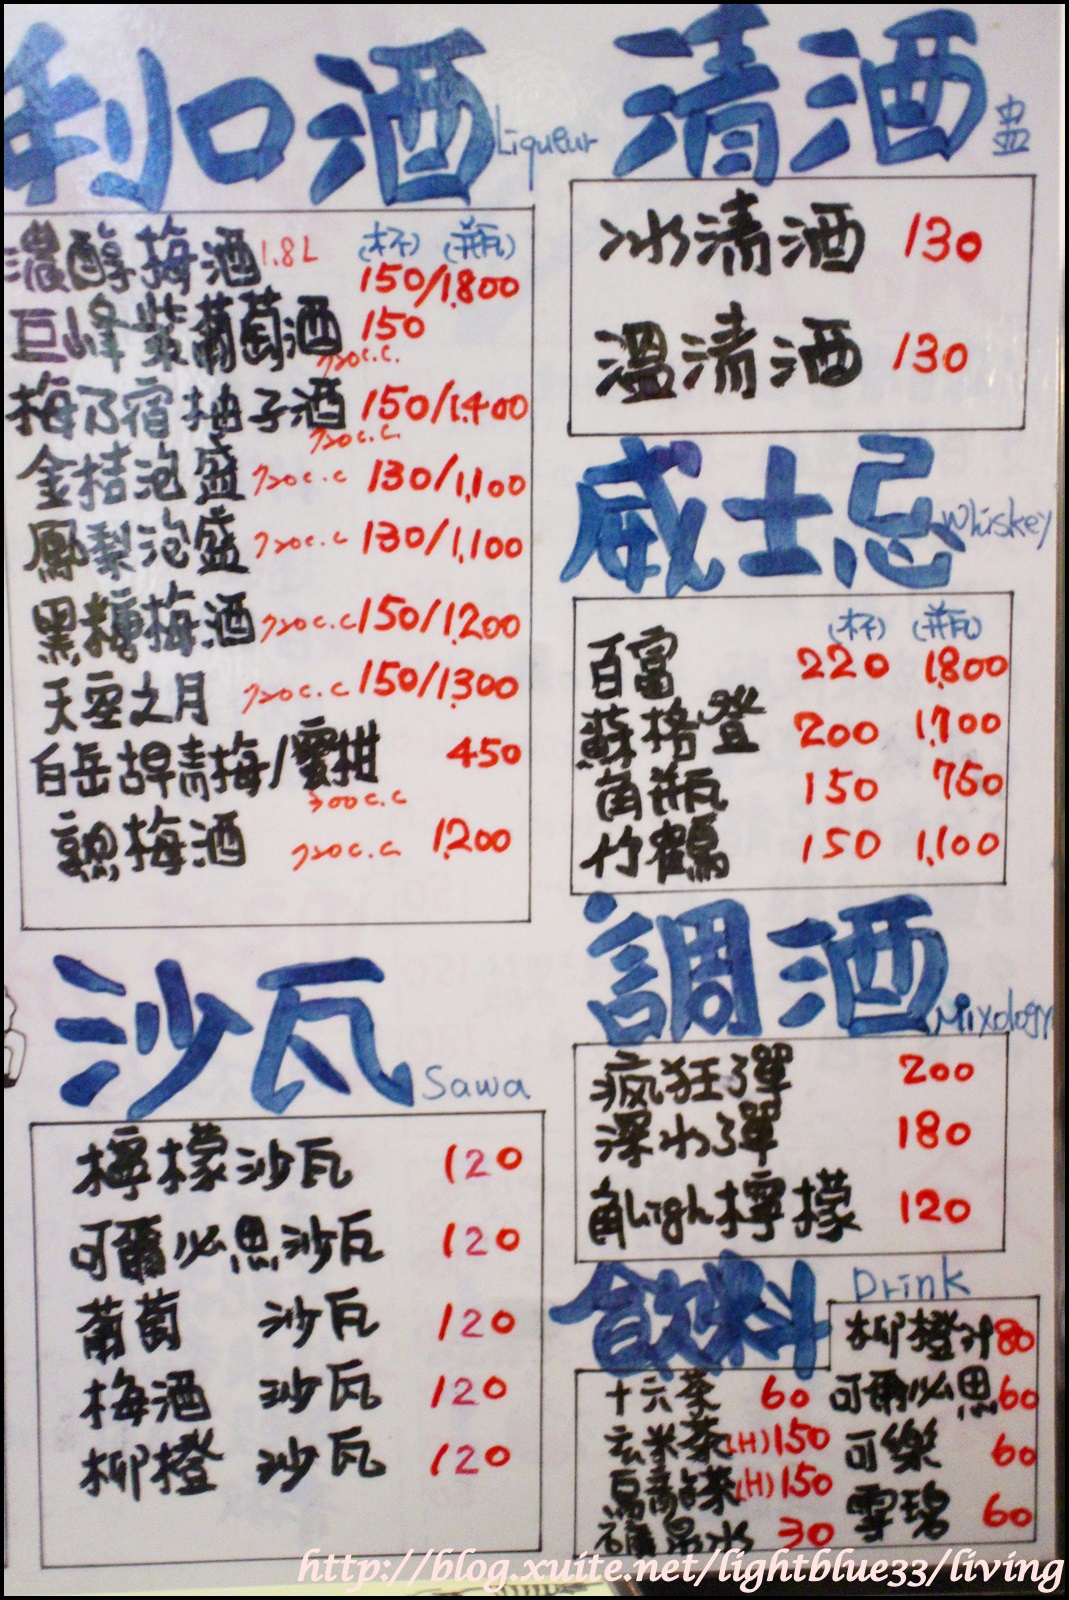 利口酒 Liqueur
(杯) (瓶)
濃醇梅酒 1.8L 150/1,800
巨峰紫葡萄酒 150
720c.c.
梅乃宿柚子酒 150/1,400
720c.c.
金桔泡盛 720c.c 130/1,100
鳳梨泡盛 720c.c 130/1,100
黑糖梅酒 720c.c 150/1,200
天空之月 720c.c 150/1,300
白岳胡早青梅/蜜柑 450
300c.c
梅酒 720c.c 1,200
沙瓦 Sawa
檸檬沙瓦 120
可爾必思沙瓦 120
葡萄 沙瓦 120
梅酒 沙瓦 120
柳橙 沙瓦 120
清酒 盅
冰清酒 130
溫清酒 130
威士忌 Whiskey
(杯) (瓶)
百富 220 1,800
蘇格登 200 1,700
角瓶 150 750
竹鶴 150 1,100
調酒 Mixology
瘋狂彈 200
深水彈 180
角high檸檬 120
飲料 Drink
十六茶 60
玄米茶(H) 150
烏龍茶(H) 150
礦泉水 30
柳橙汁 80
可爾必思 60
可樂 60
雪碧 60
http://blog.xuite.net/lightblue33/living